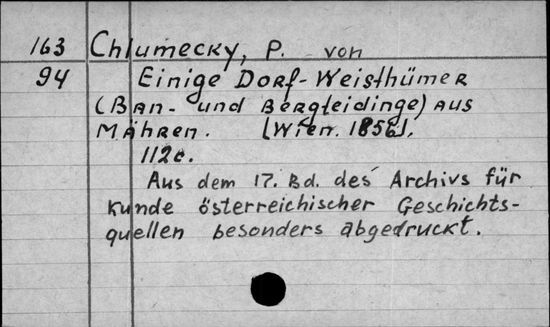 163 Chlumecky, P. von
94 Einige Dorf-Weisthümer
(Ban- und Bergteidinge) aus
Mähren. [Wien. 1856].
112c.
Aus dem 17. Bd. des Archivs für
Kunde österreichischer Geschichts-
quellen besonders abgedruckt.